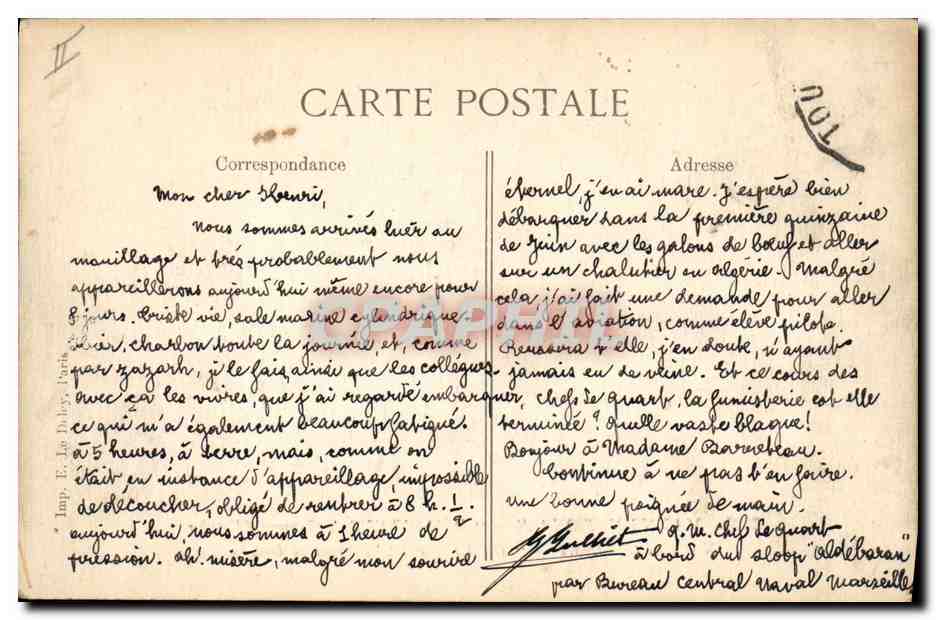 II
TOU
CARTE POSTALE
Correspondance
Adresse
Mon cher Henri,
Nous sommes arrivés hier au
mouillage et très probablement nous
appareillerons aujourd'hui même encore pour
8 jours. Triste vie, sale marine cylindrique.
Hier, charbon toute la journée, et, comme
par zazarh, je le fais, ainsi que les collègues.
avec ça les vivres, que j'ai regardé embarquer,
ce qui m'a également beaucoup fatigué.
à 5 heures, à terre, mais, comme on
était en instance d'appareillage, impossible
de découcher, obligé de rentrer à 8 h. 1/2.
aujourd'hui, nous sommes à 1 heure de
pression. Ah! misère, malgré mon sourire
éternel, j'en ai mare. J'espère bien
débarquer dans la première quinzaine
de Juin avec les galons de bœuf et aller
sur un chalutier en Algérie. Malgré
cela, j'ai fait une demande pour aller
dans l'aviation, comme élève pilote.
Reussira t'elle, j'en doute, n'ayant
jamais eu de veine. Et ce cours des
chefs de quart, la fumisterie est elle
terminée? Quelle vaste blague!
Bonjour à Madame
Continue à ne pas t'en faire.
une bonne poignée de main.
q. m. chef de quart
à bord du sloop "Aldébaran"
par Bureau Central Naval Marseille
Imp. E. Le Deley, Paris
CPAPHIL